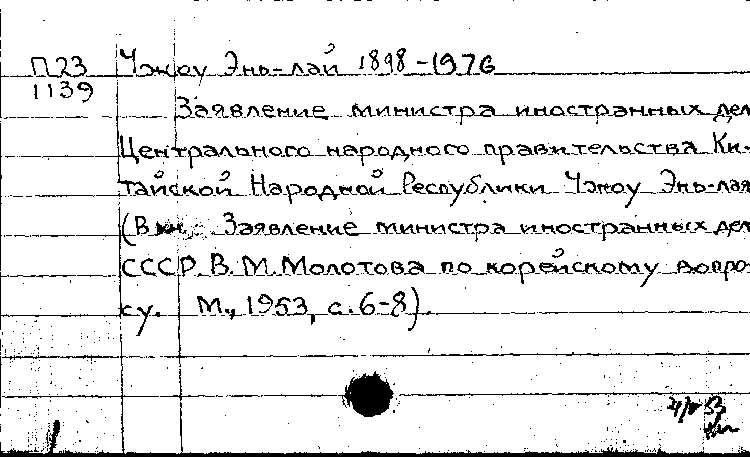 П23 Чжоу Энь-лай 1898-1976
1139
Заявление министра иностранных дел
Центрального народного правительства Ки-
тайской Народной Республики Чжоу Энь-лая
(В кн.: Заявление министра иностранных дел
СССР В. М. Молотова по корейскому вопро-
су. М., 1953, с. 6-8).